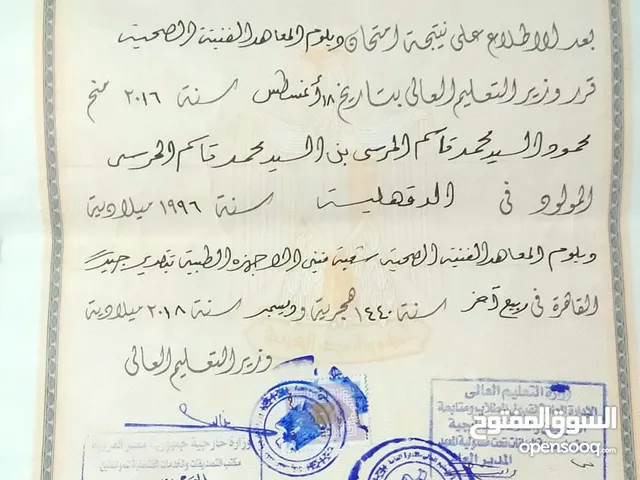 بعد الاطلاع على نتيجة امتحان دبلوم المعاهد الفنية الصحية
قرر وزير التعليم العالى بتاريخ ١٨ أغسطس سنة ٢٠١٦ منح
محمود السيد محمد قاسم المرسى بن السيد محمد قاسم المرسى
المولود فى الدقهلية سنة ١٩٩٦ ميلادية
دبلوم المعاهد الفنية الصحية شعبة فنى الاجهزه الطبية تقدير جيد
القاهرة فى ربيع آخر سنة ١٤٤٠ هجرية وديسمبر سنة ٢٠١٨ ميلادية
وزير التعليم العالى
وزارة التعليم العالى
وزارة خارجية جمهورية مصر العربية
مكتب التصديقات
المدير العام
السوق المفتوح
opensooq.com